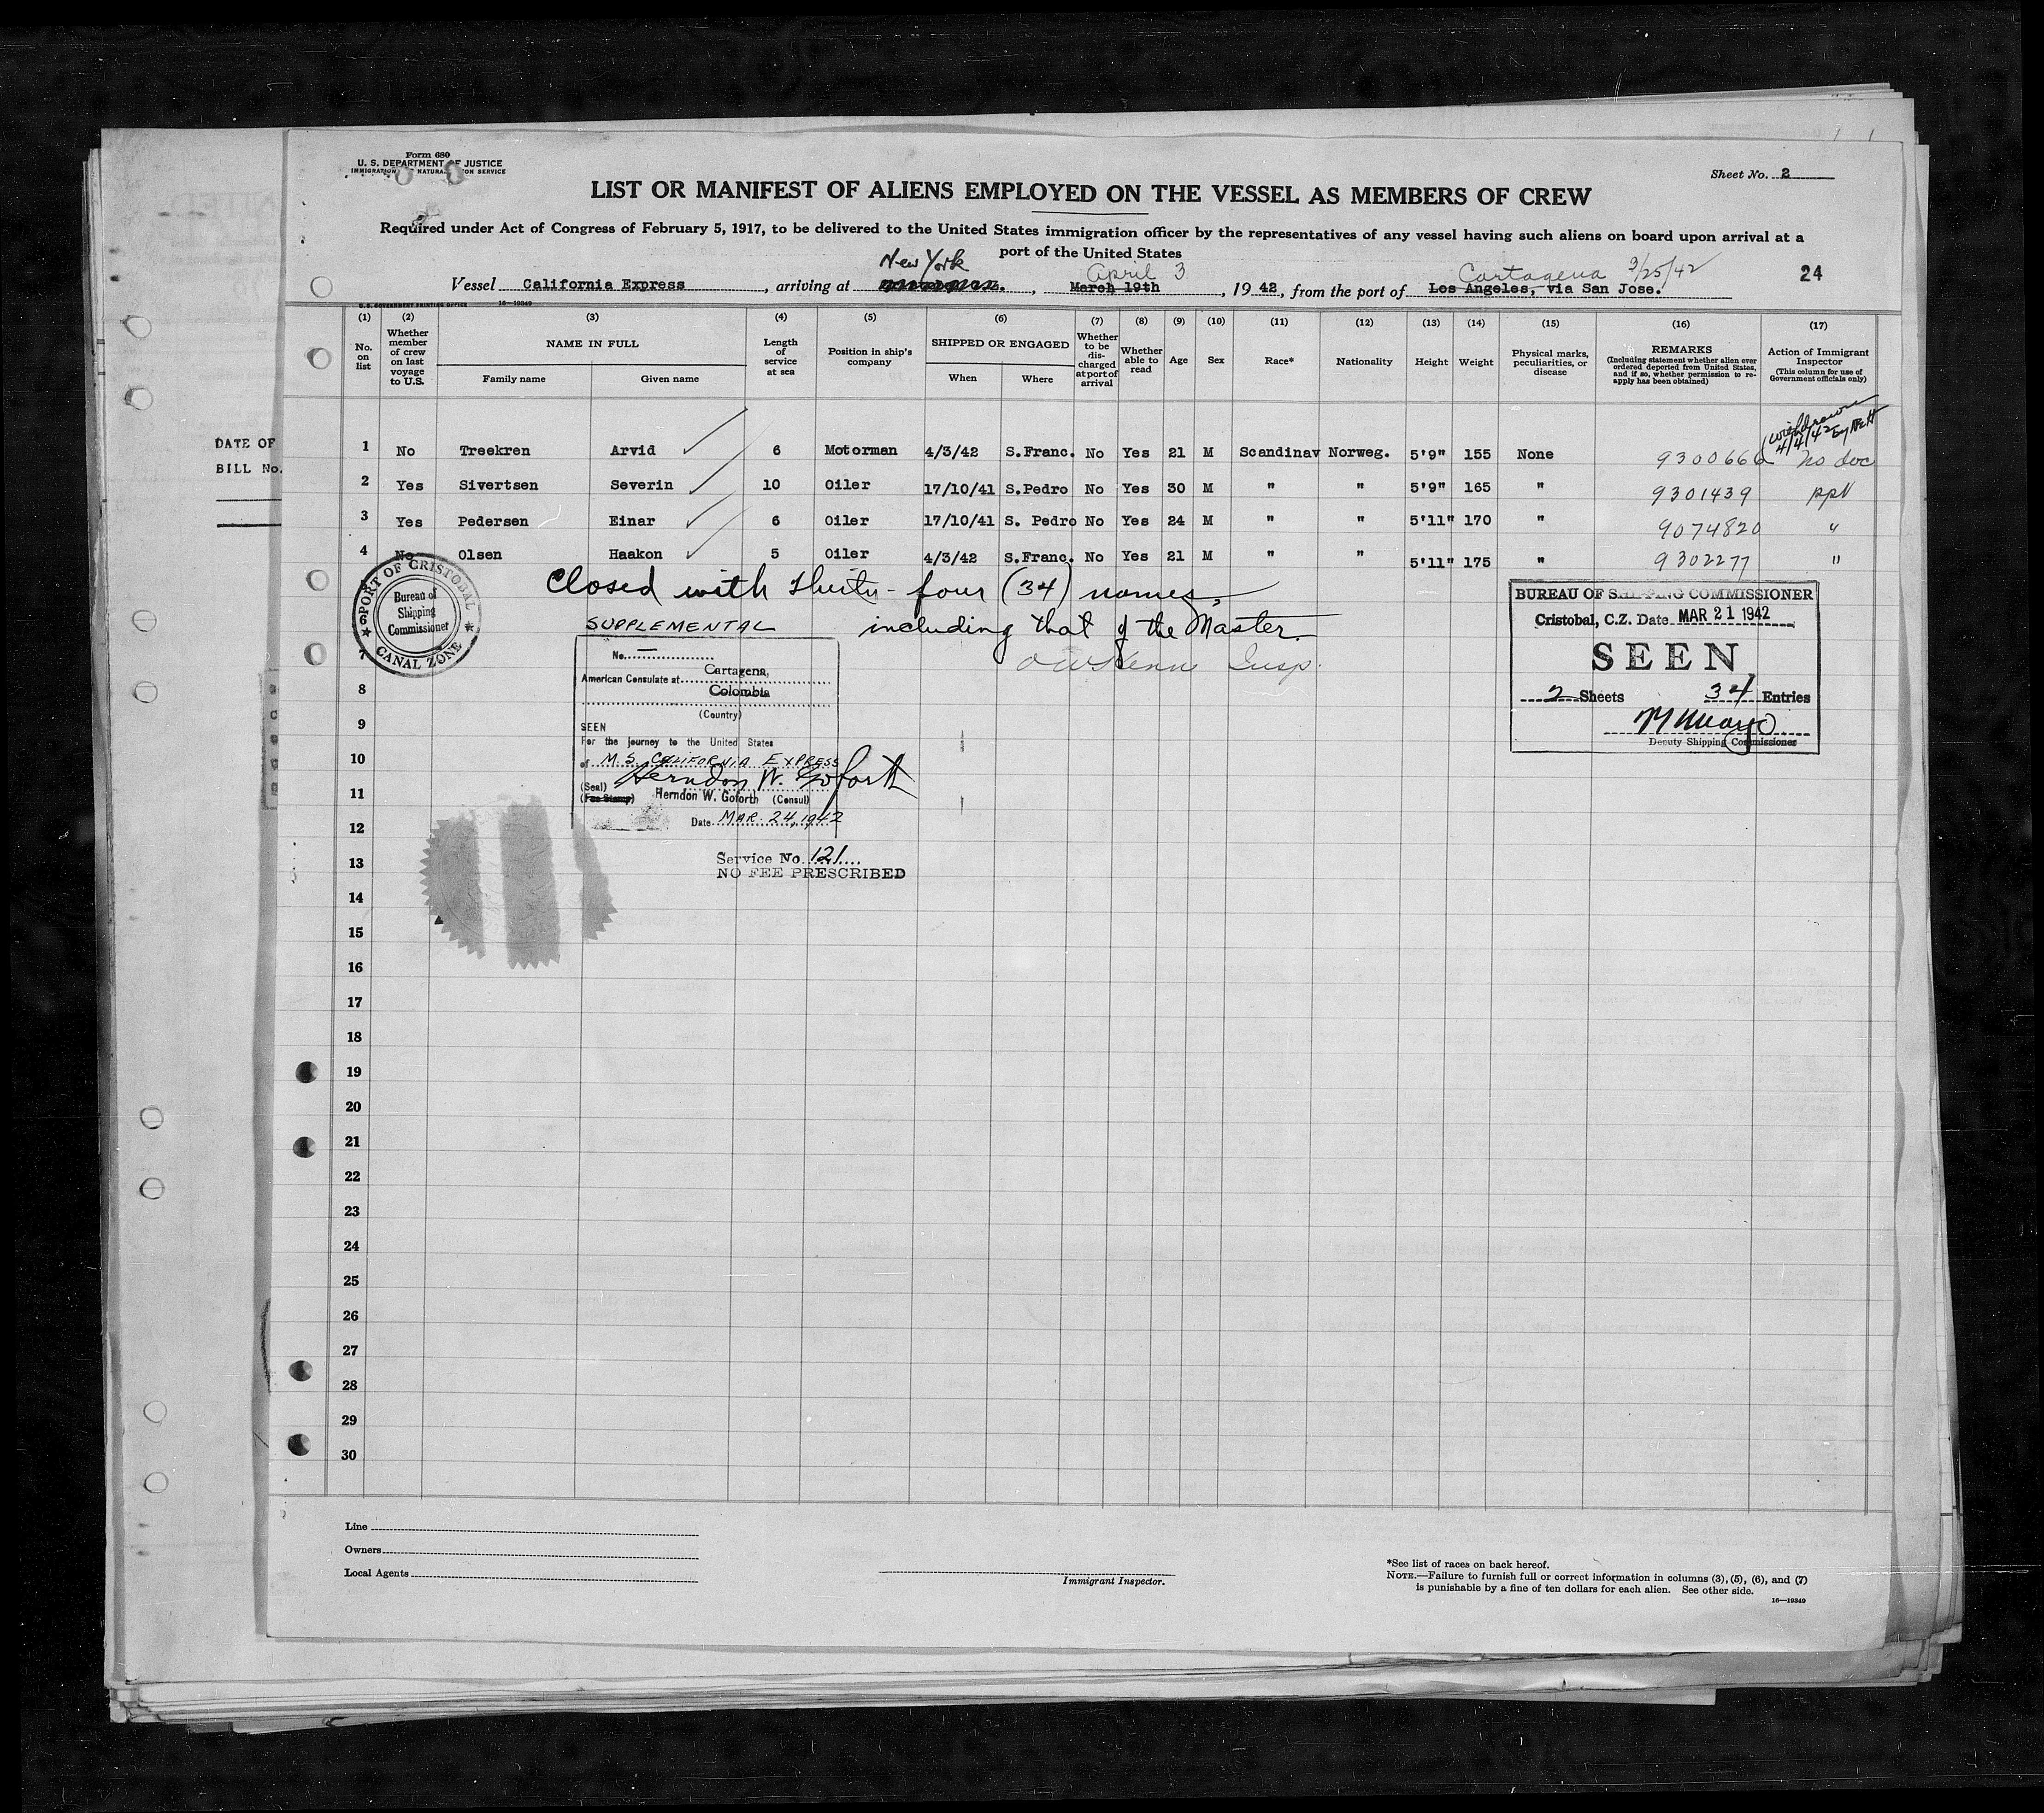 Form 680
U. S. DEPARTMENT OF JUSTICE
IMMIGRATION NATURA ON SERVICE
Sheet No. 2
LIST OR MANIFEST OF ALIENS EMPLOYED ON THE VESSEL AS MEMBERS OF CREW
Required under Act of Congress of February 5, 1917, to be delivered to the United States immigration officer by the representatives of any vessel having such aliens on board upon arrival at a
port of the United States
New York April 3 Cartagena 3/25/42
Vessel California Express, arriving at , March 19th, 1942, from the port of Los Angeles, via San Jose.
24
U.S. GOVERNMENT PRINTING OFFICE 16—19349
(1) (2) (3) (4) (5) (6) (7) (8) (9) (10) (11) (12) (13) (14) (15) (16) (17)
No. on list
Whether member of crew on last voyage to U.S.
NAME IN FULL
Family name Given name
Length of service at sea
Position in ship's company
SHIPPED OR ENGAGED
When Where
Whether to be discharged at port of arrival
Whether able to read
Age
Sex
Race*
Nationality
Height
Weight
Physical marks, peculiarities, or disease
REMARKS
(Including statement whether alien ever ordered deported from United States, and if so, whether permission to reapply has been obtained)
Action of Immigrant Inspector
(This column for use of Government officials only)
DATE OF
BILL No.
withdrawn
4/4/42
1 No Treekren Arvid 6 Motorman 4/3/42 S.Franc. No Yes 21 M Scandinav Norweg. 5'9" 155 None 9300666 No doc
2 Yes Sivertsen Severin 10 Oiler 17/10/41 S.Pedro No Yes 30 M " " 5'9" 165 " 9301439 ppt
3 Yes Pedersen Einar 6 Oiler 17/10/41 S. Pedro No Yes 24 M " " 5'11" 170 " 9074820 "
4 No Olsen Haakon 5 Oiler 4/3/42 S.Franc. No Yes 21 M " " 5'11" 175 " 9302277 "
Closed with thirty-four (34) names,
including that of the Master.
Insp.
PORT OF CRISTOBAL
Bureau of
Shipping
Commissioner
CANAL ZONE
SUPPLEMENTAL
No. —
American Consulate at Cartagena,
Colombia
(Country)
SEEN
For the journey to the United States
of M.S. CALIFORNIA EXPRESS
Herndon W. Goforth
(Seal)
(Fee Stamp) Herndon W. Goforth (Consul)
Date MAR. 24, 1942
Service No. 121
NO FEE PRESCRIBED
BUREAU OF SHIPPING COMMISSIONER
Cristobal, C.Z. Date MAR 21 1942
SEEN
2 Sheets 34 Entries
Deputy Shipping Commissioner
6
7
8
9
10
11
12
13
14
15
16
17
18
19
20
21
22
23
24
25
26
27
28
29
30
Line
Owners
Local Agents
Immigrant Inspector.
*See list of races on back hereof.
NOTE.—Failure to furnish full or correct information in columns (3), (5), (6), and (7)
is punishable by a fine of ten dollars for each alien. See other side.
16—19349